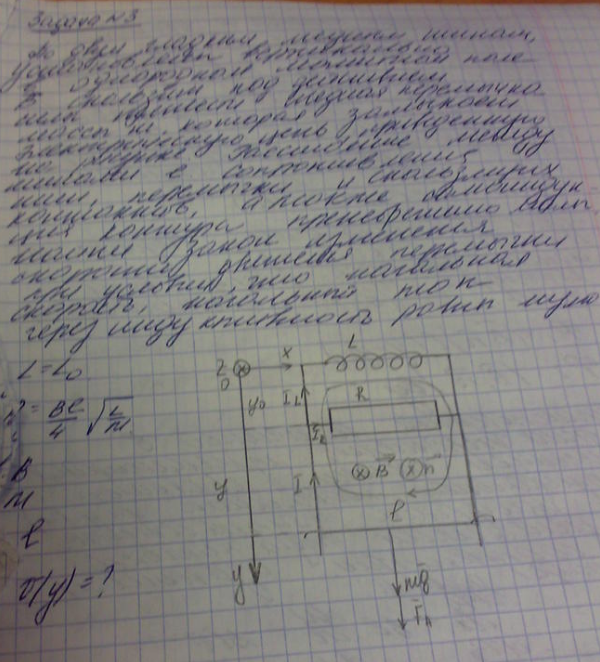 Задача №3
По двум гладким медным шинам,
установленным вертикально
в однородном магнитном поле
B скользит под действием
силы тяжести медная перемычка
массы m, которая замыкает
электрическую цепь приведенную
на рисунке Расстояние между
шинами e сопротивления
шин, перемычки и скользящих
контактов, а также
ция контура пренебрежимо малы
найти закон изменения
скорости движения перемычки
при условии, что начальная
скорость, начальный ток
через индуктивность равны нулю
L = L₀
= Bl/4 √L/m
B
m
l
v(y) = ?
Z 0 x L
y₀ I_L R
I_R
B n
y I
l
y
mg